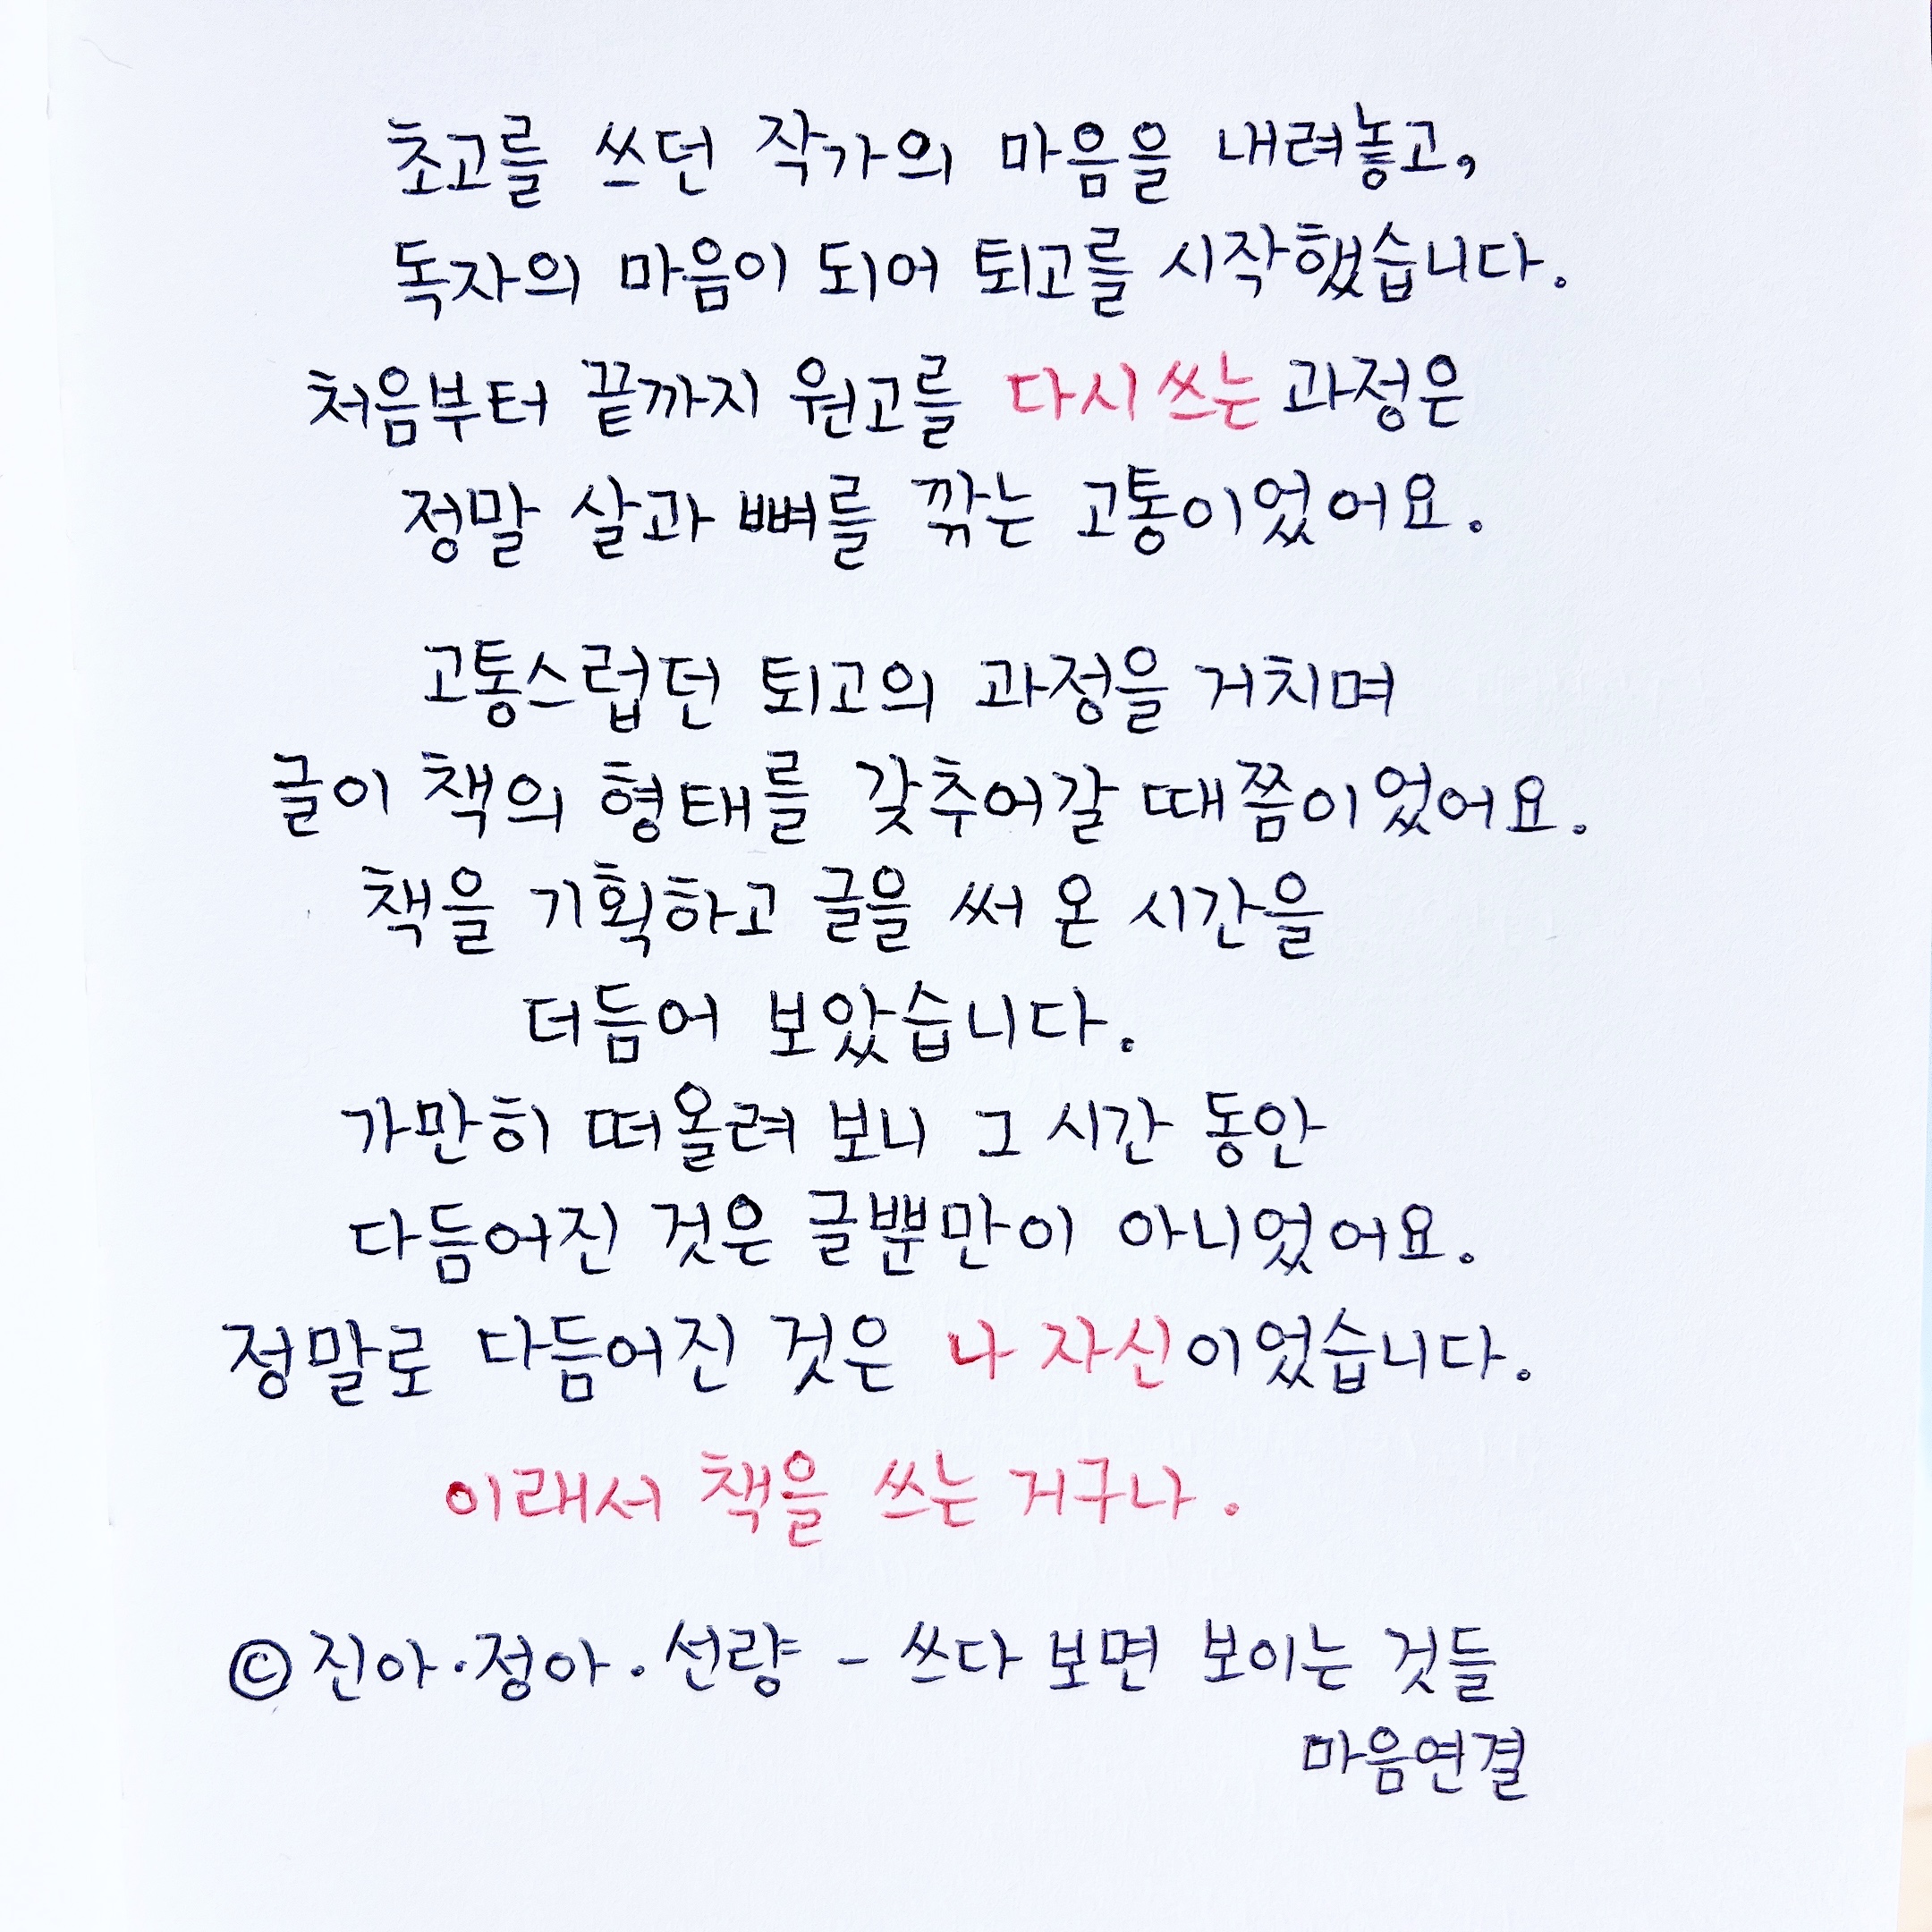 초고를 쓰던 작가의 마음을 내려놓고,
독자의 마음이 되어 퇴고를 시작했습니다.
처음부터 끝까지 원고를 다시 쓰는 과정은
정말 살과 뼈를 깎는 고통이었어요.
고통스럽던 퇴고의 과정을 거치며
글이 책의 형태를 갖추어갈 때쯤이었어요.
책을 기획하고 글을 써 온 시간을
더듬어 보았습니다.
가만히 떠올려 보니 그 시간 동안
다듬어진 것은 글뿐만이 아니었어요.
정말로 다듬어진 것은 나 자신이었습니다.
이래서 책을 쓰는 거구나.
©진아·정아·선량 - 쓰다 보면 보이는 것들
마음연결